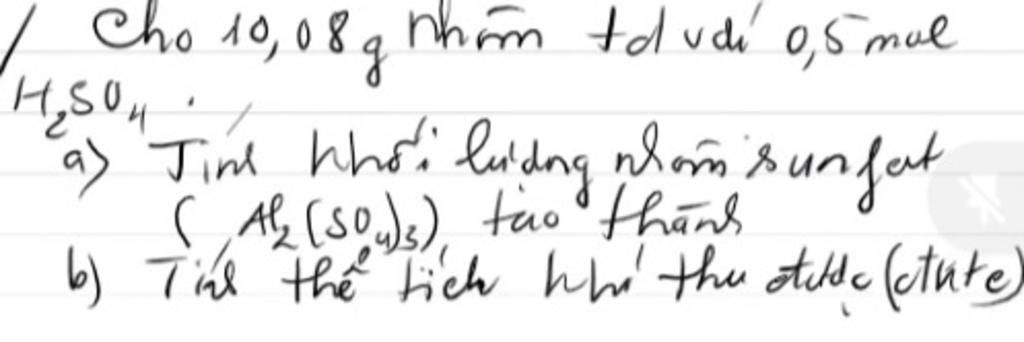 Cho 10,08g nhôm td với 0,5 mol
H₂SO₄.
a) Tính khối lượng nhôm sunfat
( Al₂(SO₄)₃) tạo thành
b) Tính thể tích khí thu được (đktc)